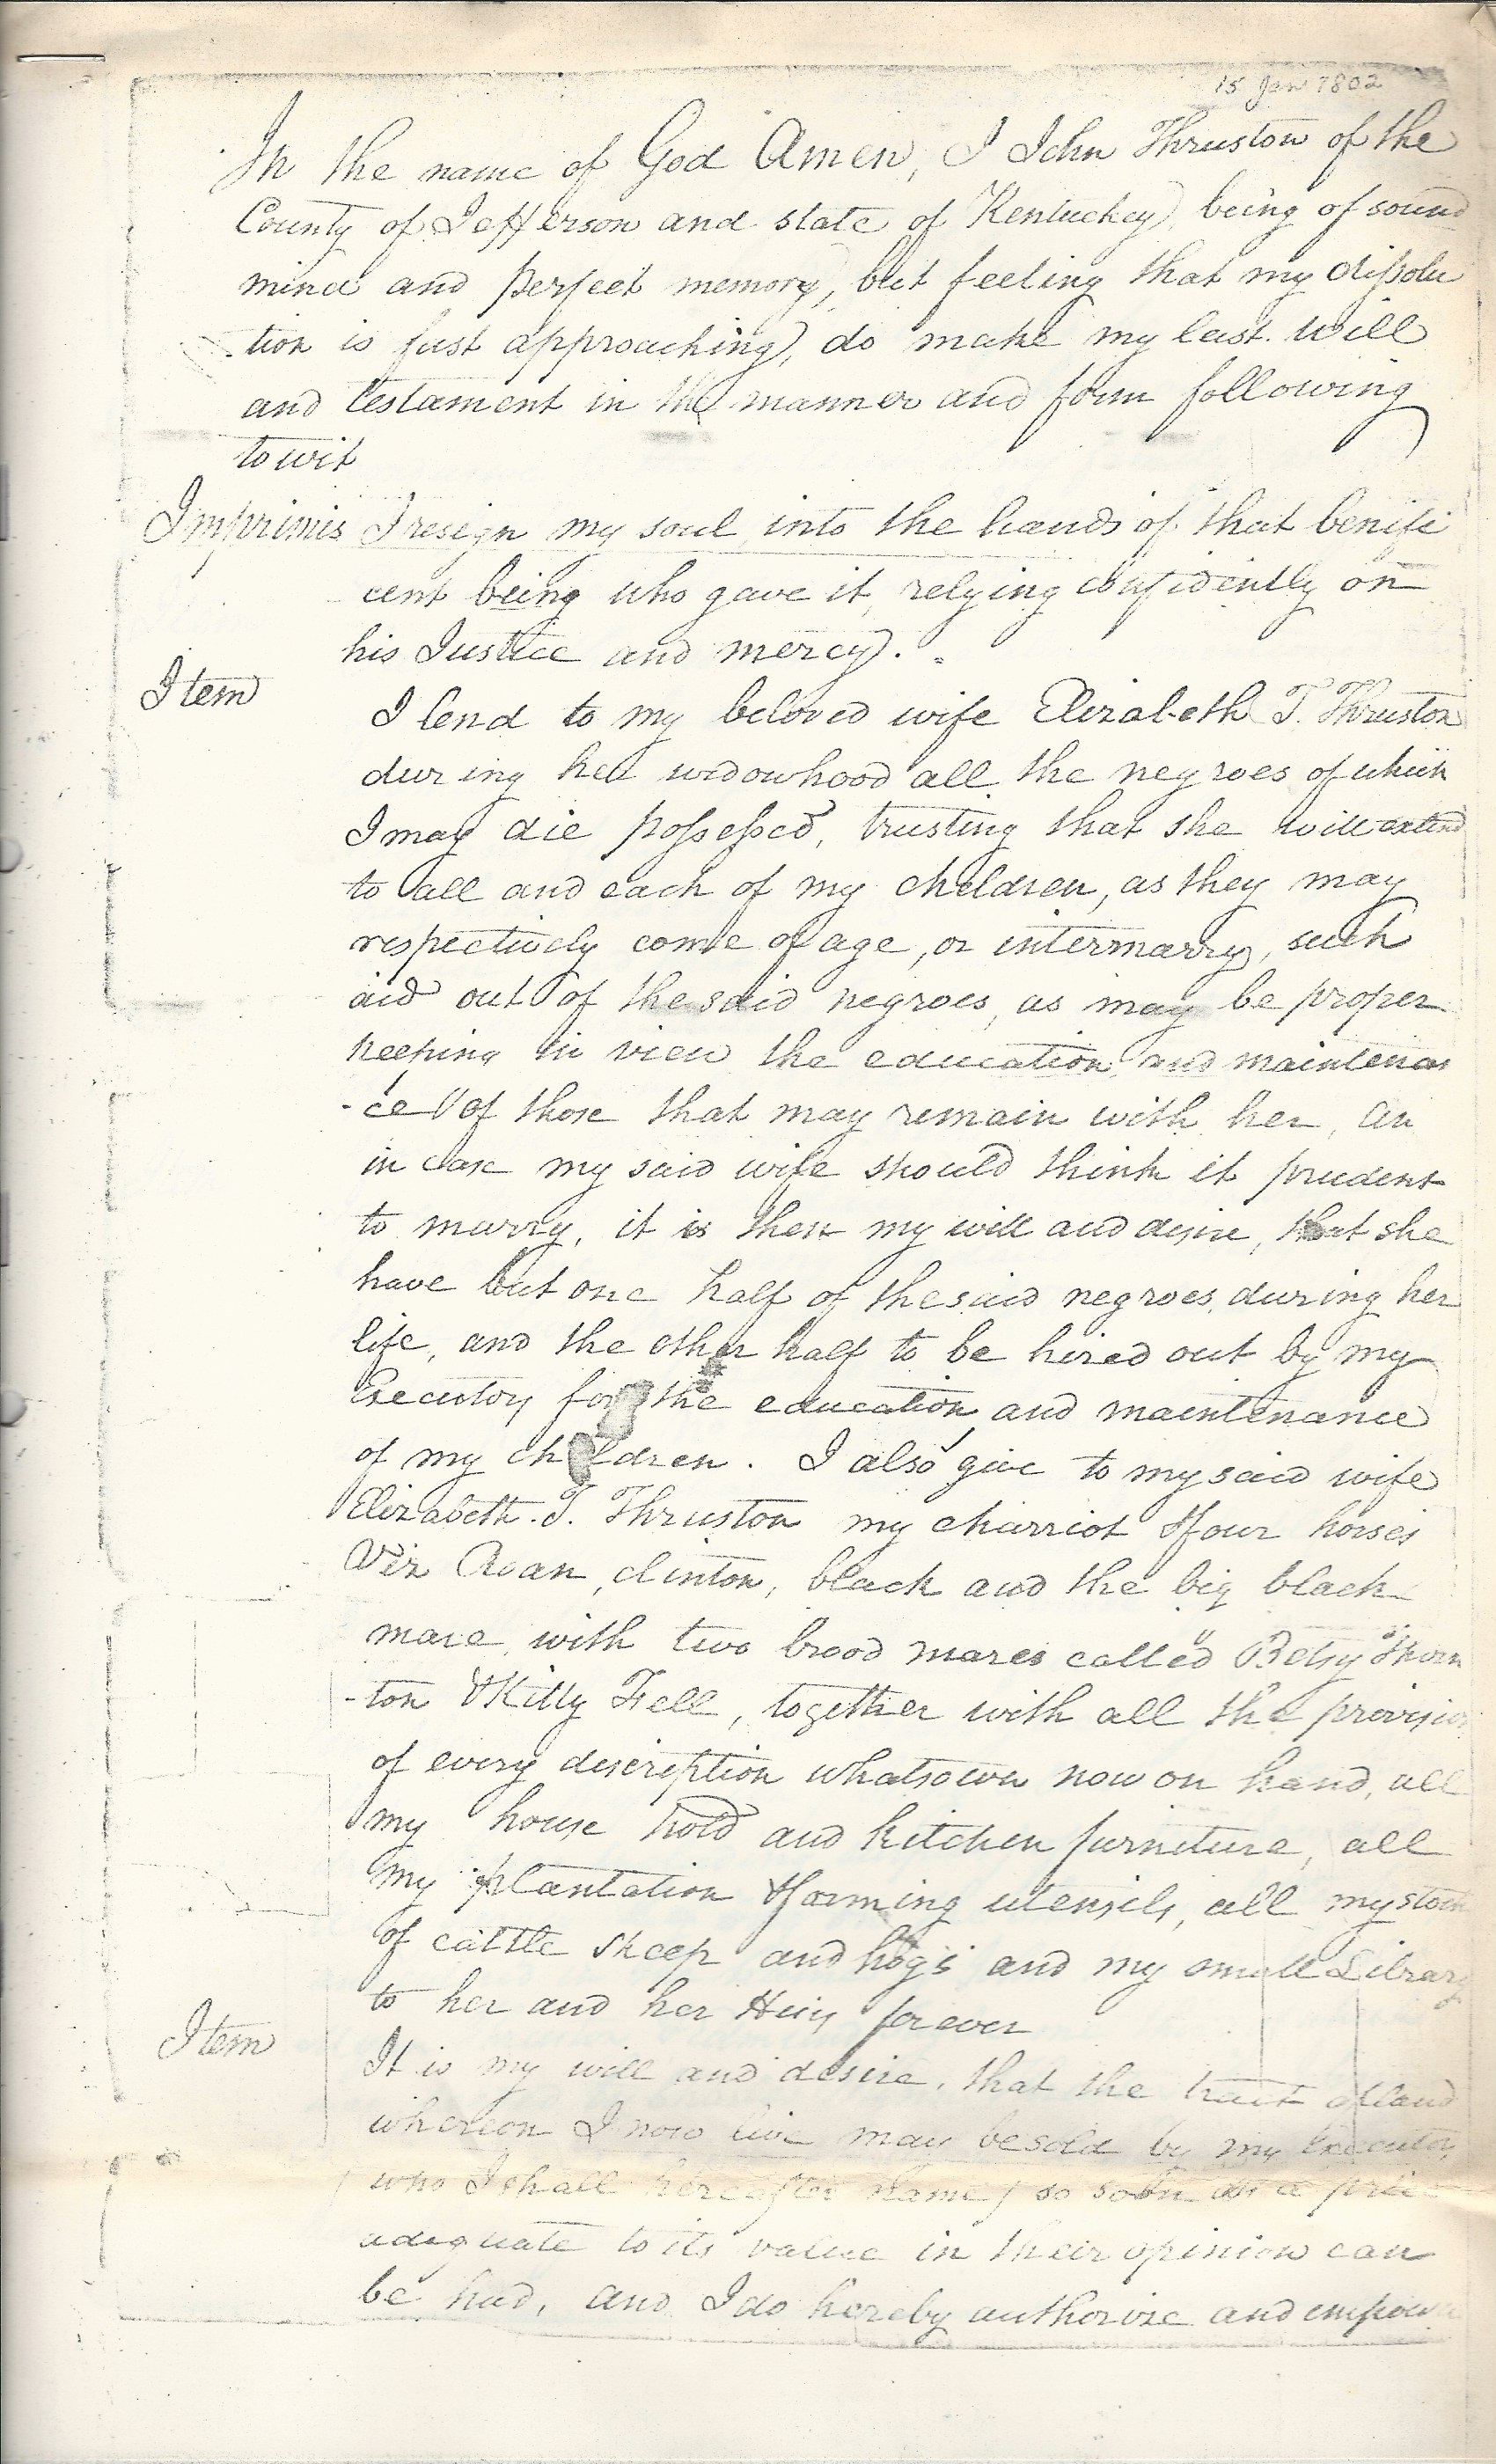 15 Jan 1802
In the name of God Amen, I John Thruston of the
County of Jefferson and state of Kentucky, being of sound
mind and perfect memory, but feeling that my dissolu
tion is fast approaching, do make my last will
and testament in the manner and form following
to wit
Imprimis I resign my soul into the hands of that benifi
cent being who gave it, relying confidently on
his Justice and mercy.
Item I lend to my beloved wife Elizabeth T. Thruston
during her widowhood all the negroes of which
I may die possessed, trusting that she will extend
to all and each of my children, as they may
respectively come of age, or intermarry, such
aid out of the said negroes, as may be proper
keeping in view the education and maintenan
-ce of those that may remain with her, an
in case my said wife should think it prudent
to marry, it is then my will and desire, that she
have but one half of the said negroes during her
life, and the other half to be hired out by my
Executors for the education and maintenance
of my children. I also give to my said wife
Elizabeth. T. Thruston my charriot & four horses
Viz Roan, clinton, black and the big black
mare, with two brood mares called Betsy Thorn
-ton & Kitty Fell, together with all the provision
of every discription whatsoever now on hand, all
my house hold and kitchen furniture, all
my plantation & farming utensils, all my stock
of cattle sheep and hogs and my small Library
to her and her Heirs forever
Item It is my will and desire, that the tract of land
whereon I now live may be sold by my Executors
who I shall hereafter name) so soon as a price
adequate to its value in their opinion can
be had, and I do hereby authorize and empower